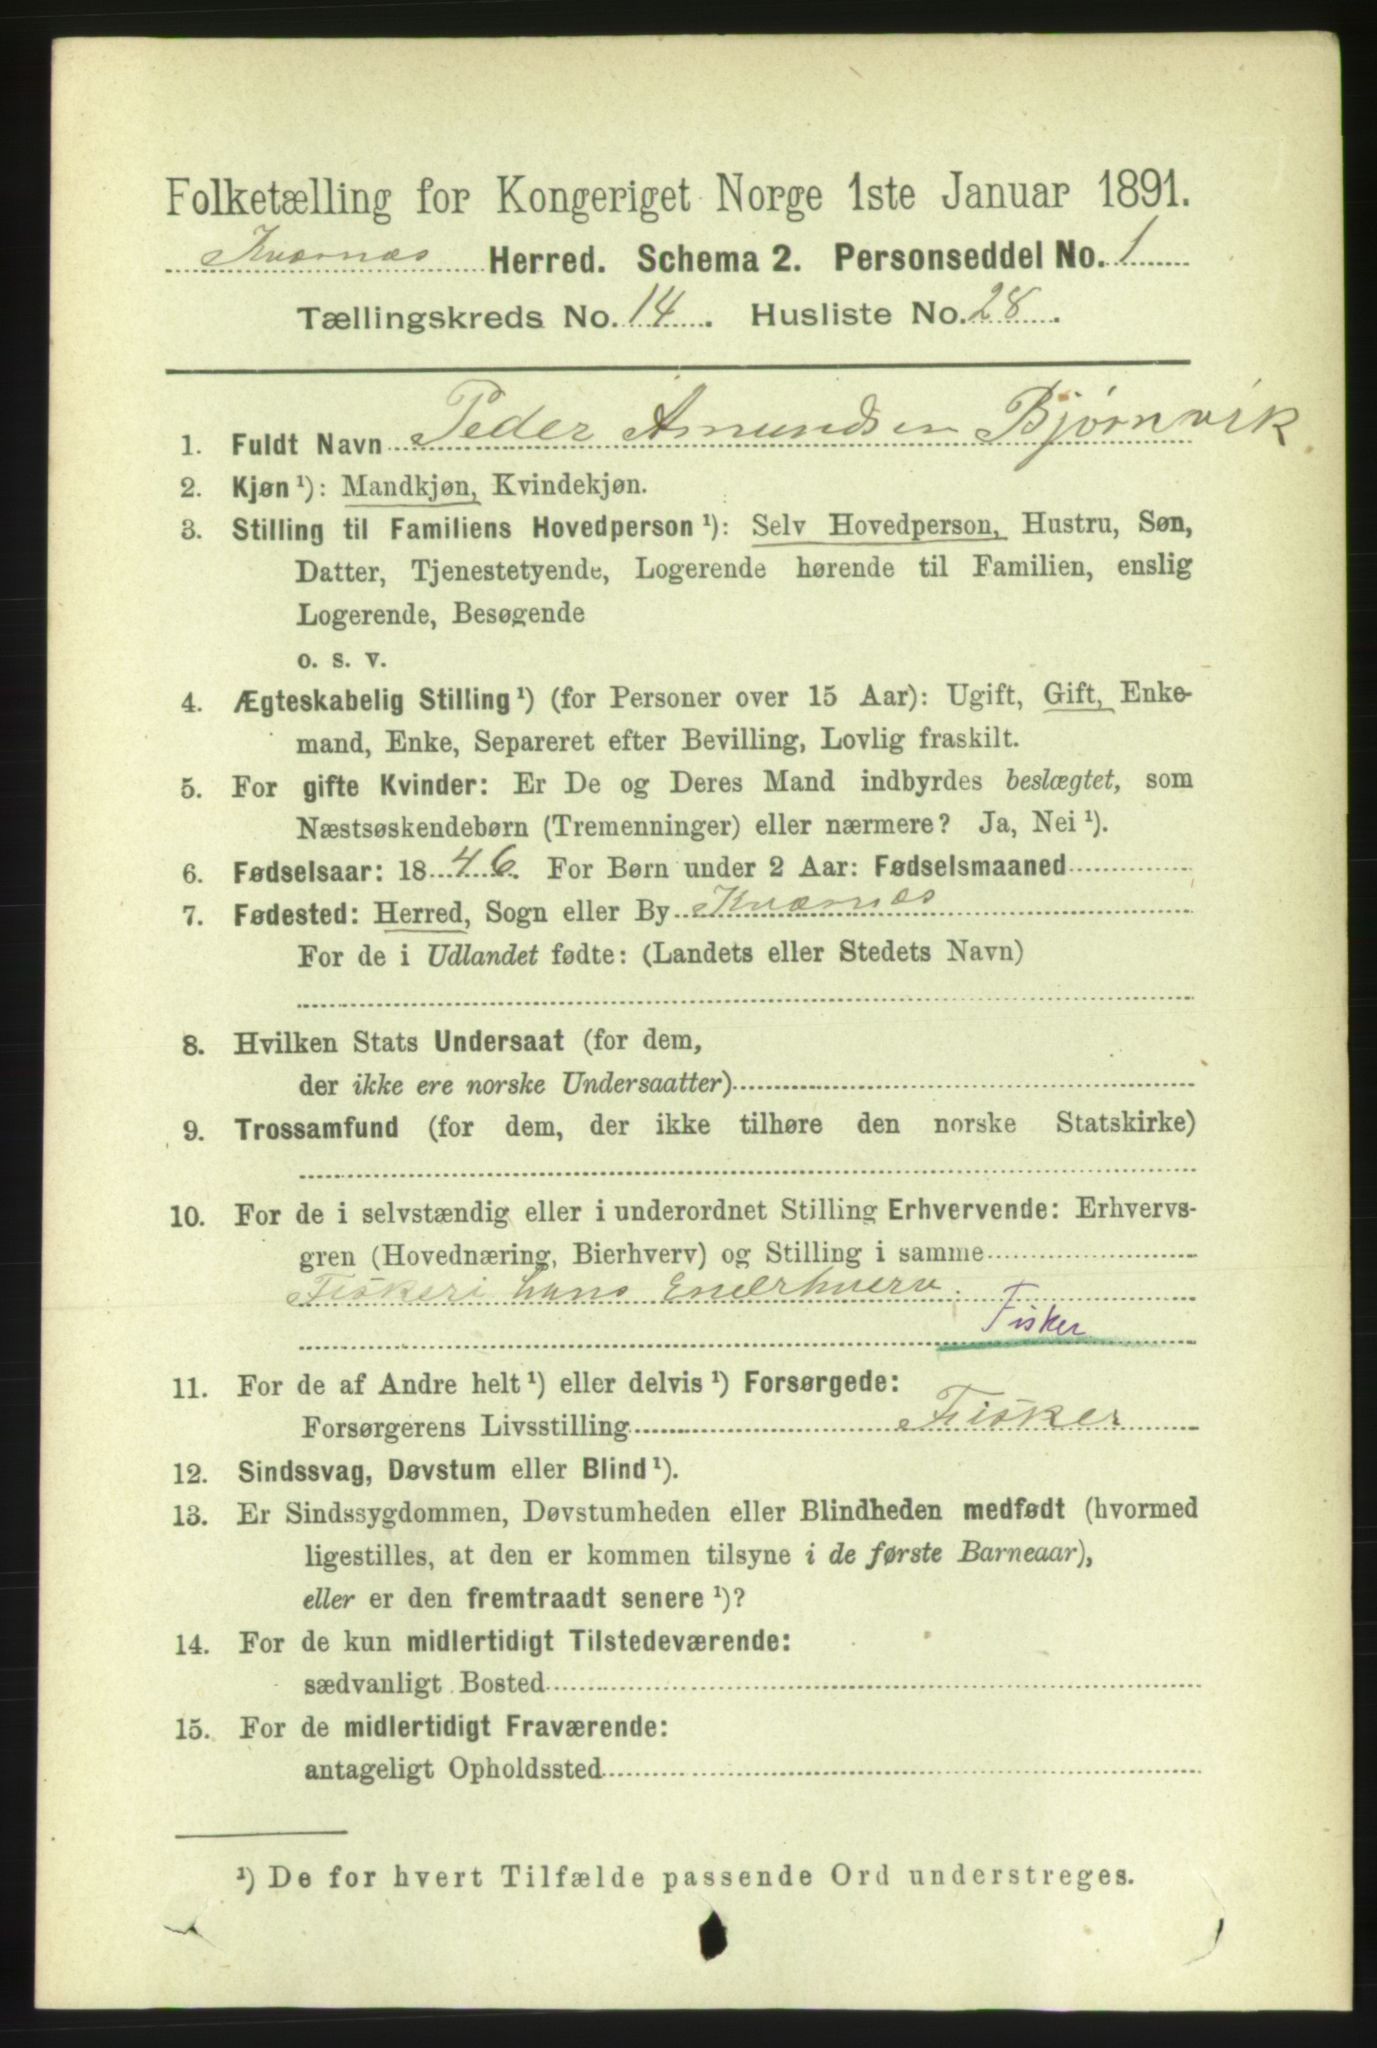 Folketælling for Kongeriget Norge 1ste Januar 1891.
Kværnæs Herred. Schema 2. Personseddel No. 1
Tællingskreds No. 14. Husliste No. 28.
1. Fuldt Navn Peder Amundsen Bjørnvik
2. Kjøn ¹): Mandkjøn, Kvindekjøn.
3. Stilling til Familiens Hovedperson ¹): Selv Hovedperson, Hustru, Søn,
Datter, Tjenestetyende, Logerende hørende til Familien, enslig
Logerende, Besøgende
o. s. v.
4. Ægteskabelig Stilling ¹) (for Personer over 15 Aar): Ugift, Gift, Enke-
mand, Enke, Separeret efter Bevilling, Lovlig fraskilt.
5. For gifte Kvinder: Er De og Deres Mand indbyrdes beslægtet, som
Næstsøskendebørn (Tremenninger) eller nærmere? Ja, Nei ¹).
6. Fødselsaar: 1846. For Børn under 2 Aar: Fødselsmaaned
7. Fødested: Herred, Sogn eller By Kværnæs
For de i Udlandet fødte: (Landets eller Stedets Navn)
8. Hvilken Stats Undersaat (for dem,
der ikke ere norske Undersaatter)
9. Trossamfund (for dem, der ikke tilhøre den norske Statskirke)
10. For de i selvstændig eller i underordnet Stilling Erhvervende: Erhvervs-
gren (Hovednæring, Bierhverv) og Stilling i samme
Fiskeri Enerhverv.
Fisker
11. For de af Andre helt ¹) eller delvis ¹) Forsørgede:
Forsørgerens Livsstilling Fisker
12. Sindssvag, Døvstum eller Blind ¹).
13. Er Sindssygdommen, Døvstumheden eller Blindheden medfødt (hvormed
ligestilles, at den er kommen tilsyne i de første Barneaar),
eller er den fremtraadt senere ¹)?
14. For de kun midlertidigt Tilstedeværende:
sædvanligt Bosted
15. For de midlertidigt Fraværende:
antageligt Opholdssted
¹) De for hvert Tilfælde passende Ord understreges.